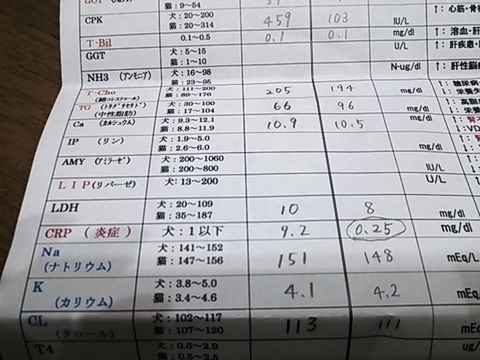 猫：9~54
CPK 犬：20~200 459 103 IU/L ↑：心筋・骨格
猫：20~314
T-Bil 0.1~0.5 0.1 0.1 mg/dl ↑：溶血・肝
GGT 犬：5~15 IU/L ↑：肝疾患・
猫：1~10
NH3 (アンモニア) 犬：16~98 N-ug/dl ↑：肝性脳
猫：23~95
T-Cho 犬：111~200 205 194 mg/dl
(総コレステロール) 猫：89~176 ↓：栄養
TG (トリグリセリド) 犬：30~100 66 96 mg/dl
(中性脂肪) 猫：17~104
Ca (カルシュウム) 犬：9.3~12.1 10.9 10.5 mg/dl
猫：8.8~11.9
IP (リン) 犬：1.9~5.0 mg/dl
猫：2.6~6.0
AMY (アミラーゼ) 犬：200~1060 IU/L
猫：200~800
LIP(リパーゼ) 犬：13~200 U/L
LDH 犬：20~109 10 8 mg/dl
猫：35~187
CRP (炎症) 犬：1以下 9.2 0.25 mg/dl
Na 犬：141~152 151 148 mEq/L
(ナトリウム) 猫：147~156
K 犬：3.8~5.0 4.1 4.2 mEq/L
(カリウム) 猫：3.4~4.6
CL 犬：102~117 113 111 mEq
(クロール) 猫：107~120
T4 犬：0.6~2.9 ug/dl
猫：0.5~2.5